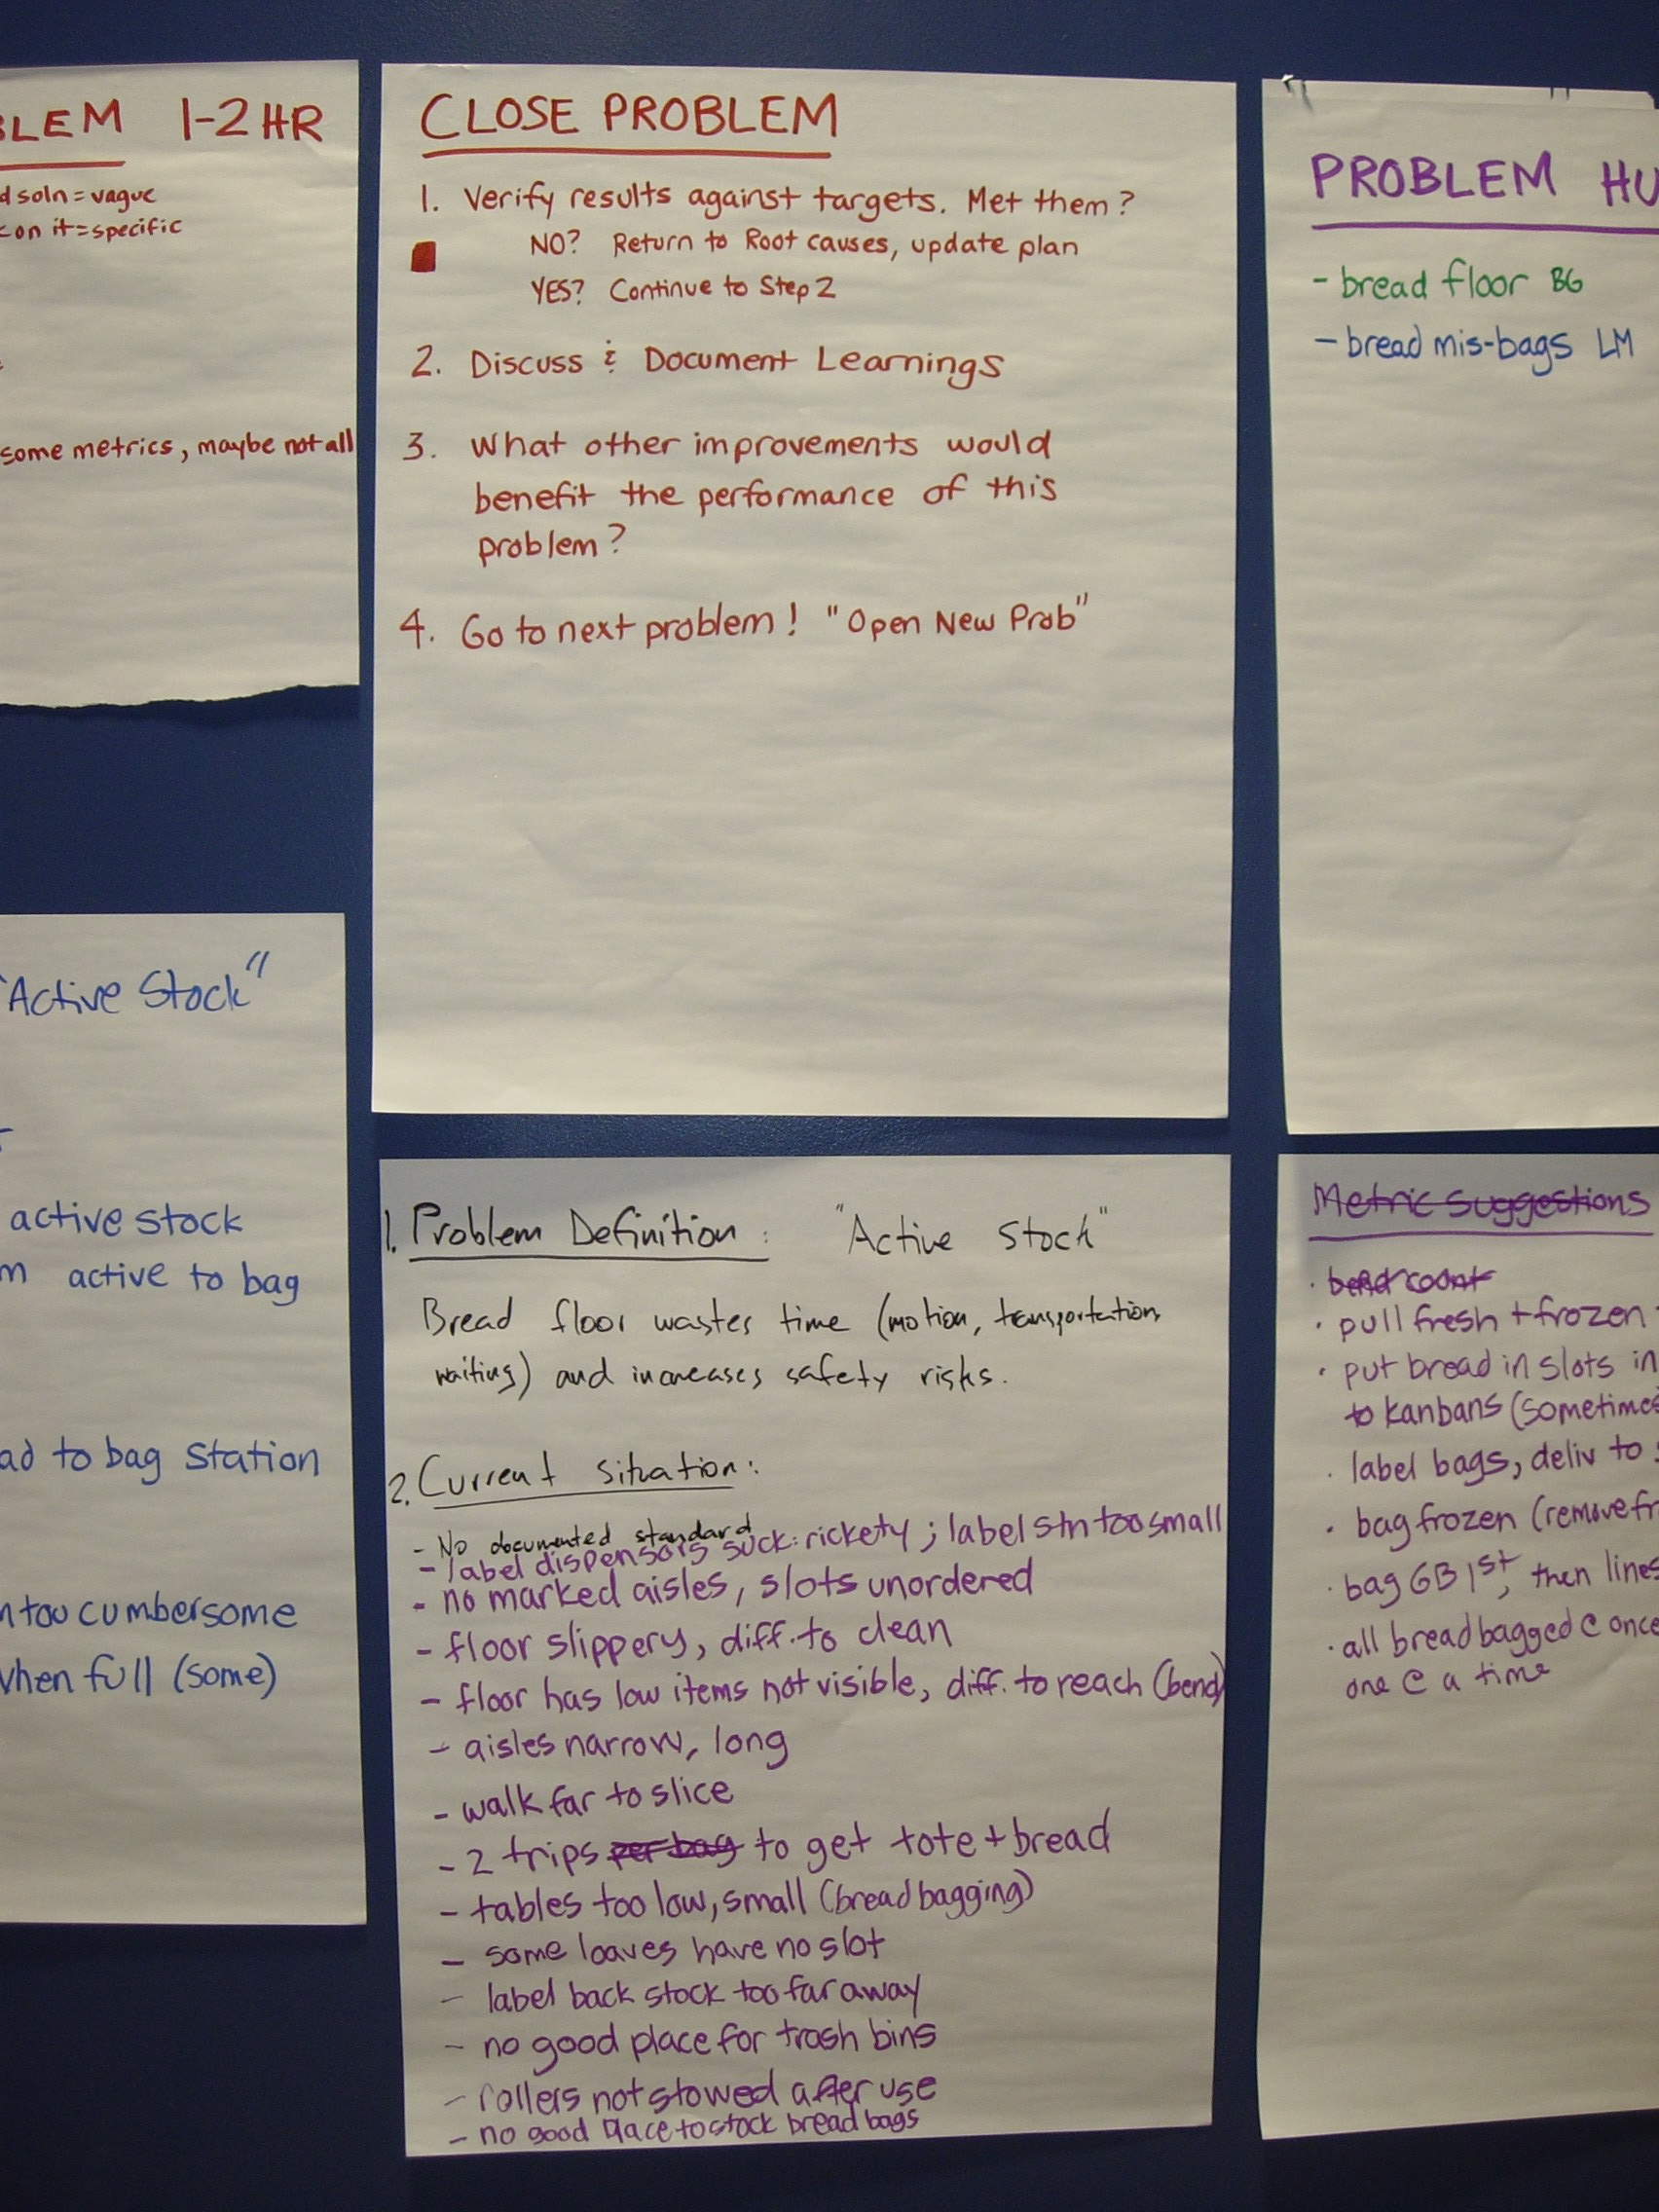 BLEM 1-2 HR
d soln = vague
on it = specific
some metrics, maybe not all
CLOSE PROBLEM
1. Verify results against targets. Met them?
NO? Return to Root causes, update plan
YES? Continue to Step 2
2. Discuss & Document Learnings
3. What other improvements would
benefit the performance of this
problem?
4. Go to next problem! "Open New Prob"
PROBLEM HU
- bread floor BG
- bread mis-bags LM
"Active Stock"
active stock
m active to bag
ad to bag station
too cumbersome
when full (some)
1. Problem Definition: "Active Stock"
Bread floor wastes time (motion, transportation,
waiting) and increases safety risks.
2. Current situation:
- No documented standard
- label dispensors suck: rickety; label stn too small
- no marked aisles, slots unordered
- floor slippery, diff. to clean
- floor has low items not visible, diff. to reach (bend)
- aisles narrow, long
- walk far to slice
- 2 trips per bag to get tote + bread
- tables too low, small (bread bagging)
- some loaves have no slot
- label back stock too far away
- no good place for trash bins
- rollers not stowed after use
- no good place to stock bread bags
Metric suggestions
· count
· pull fresh + frozen
· put bread in slots in
to kanbans (sometimes
· label bags, deliv to
· bag frozen (remove fr
· bag GB 1st, then lines
· all bread bagged @ once
one @ a time